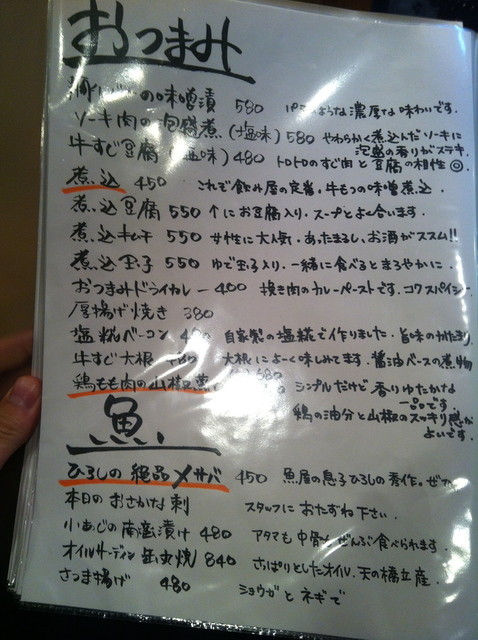 おつまみ
の味噌漬 580 ような濃厚な味わいです。
ソーキ肉の泡盛煮(塩味)580 やわらかく煮込んだソーキに
泡盛の香りがステキ
牛すじ豆腐(塩味)480 トロトロのすじ肉と豆腐の相性◎
煮込 450 これぞ飲み屋の定番。牛もつの味噌煮込。
煮込豆腐 550 ↑にお豆腐入り。スープとよく合います。
煮込キムチ 550 女性に大人気。あったまるし、お酒がススム!!
煮込玉子 550 ゆで玉子入り。一緒に食べるとまろやかに。
おつまみドライカレー 400 挽き肉のカレーペーストです。コクスパイシー
厚揚げ焼き 380
塩糀ベーコン 480 自家製の塩糀で作りました。旨味のかたまり
牛すじ大根 大根によーく味しみてます。醤油ベースの煮物
鶏もも肉の山椒 シンプルだけど香りゆたかな
一品です。
鶏の油分と山椒のスッキリ感が
よいです。
魚
ひろしの絶品〆サバ 450 魚屋の息子ひろしの秀作。ぜひ
本日のおさかな刺 スタッフにおたずね下さい。
小あじの南蛮漬け 480 アタマも中骨も ぜんぶ食べられます。
オイルサーディン缶焼 840 さっぱりとしたオイル。天の橋立産。
さつま揚げ 480 ショウガとネギで